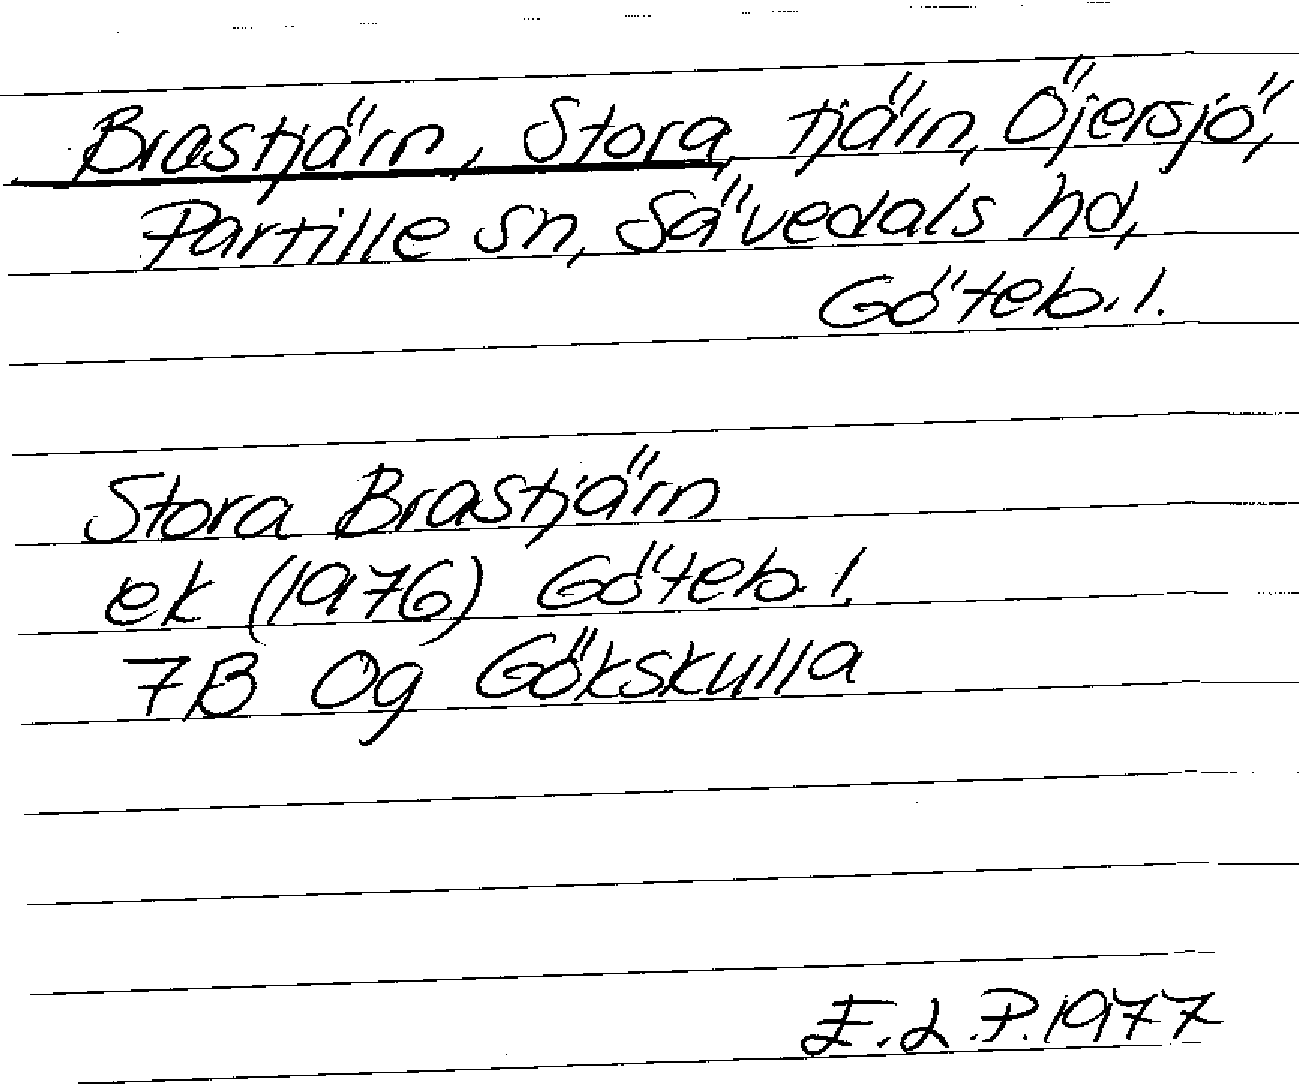 Brastjärn, Stora, tjärn, Öjersjö,
Partille sn, Sävedals hd,
Göteb. l.
Stora Brastjärn
ek (1976) Göteb. l.
7B 0g Gökskulla
E.L.P. 1977